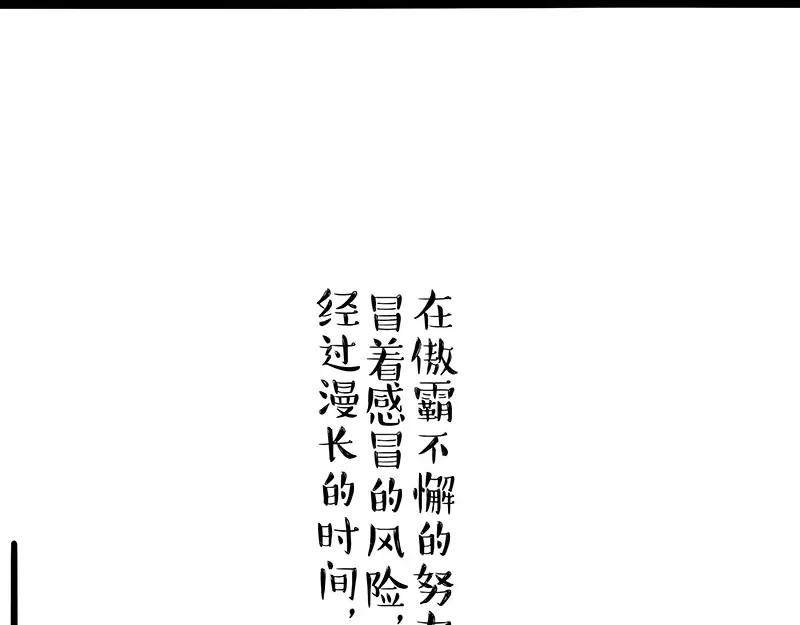 在傲霸不懈的努力
冒着感冒的风险，
经过漫长的时间，